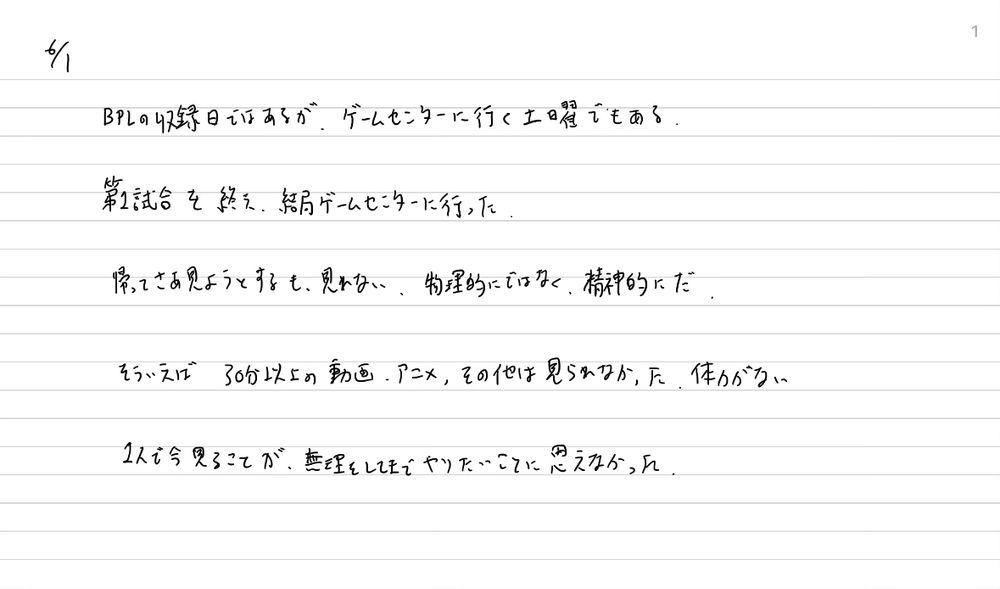 1
6/1
BPLの収録日ではあるが、ゲームセンターに行く土曜でもある.
第1試合を終え、結局ゲームセンターに行った.
帰ってさあ見ようとするも、見れない. 物理的にではなく、精神的にだ.
そういえば 30分以上の動画、アニメ, その他は見られなかった. 体力がない
1人で今見ることが、無理をしてまでやりたいことに思えなかった.